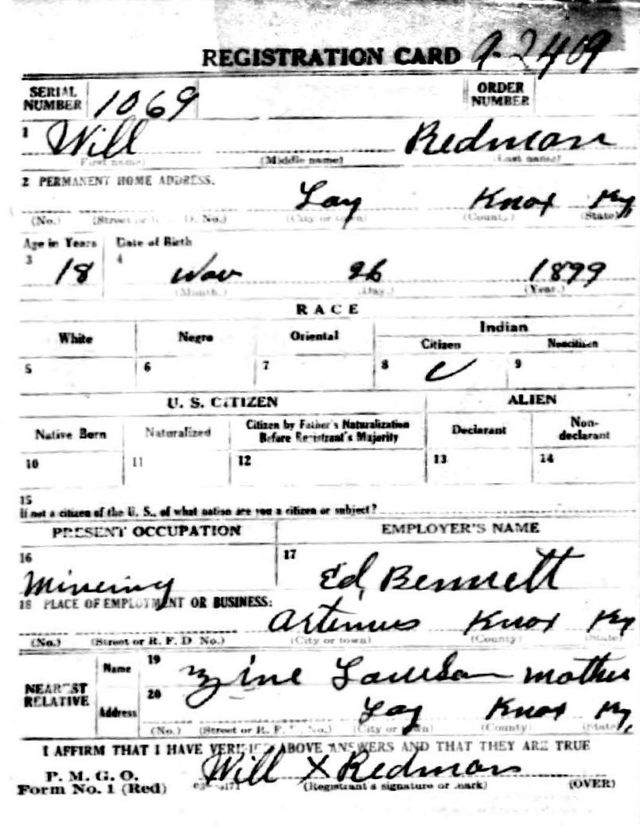 REGISTRATION CARD 9-2409
SERIAL NUMBER 1069 ORDER NUMBER
1 Will Redman
(First name) (Middle name) (Last name)
2 PERMANENT HOME ADDRESS.
Lay Knox Ky
(No.) (Street or R. F. D. No.) (City or town) (County) (State)
Age in Years Date of Birth
3 18 4 Nov 26 1899
(Month.) (Day.) (Year.)
RACE
White Negro Oriental Indian
Citizen Noncitizen
5 6 7 8 ✓ 9
U. S. CITIZEN ALIEN
Native Born Naturalized Citizen by Father's Naturalization Before Registrant's Majority Declarant Non-declarant
10 11 12 13 14
15
If not a citizen of the U. S., of what nation are you a citizen or subject?
PRESENT OCCUPATION EMPLOYER'S NAME
16 Mineing 17 Ed, Bennett
18 PLACE OF EMPLOYMENT OR BUSINESS:
Artemus Knox Ky
(No.) (Street or R. F. D. No.) (City or town) (County) (State)
NEAREST RELATIVE
Name 19 Lawson mother
Address 20 Lay Knox Ky,
(No.) (Street or R. F. D. No.) (City or town) (County) (State)
I AFFIRM THAT I HAVE VERIFIED ABOVE ANSWERS AND THAT THEY ARE TRUE
P. M. G. O.
Form No. 1 (Red) Will X Redman
(Registrant's signature or mark) (OVER)